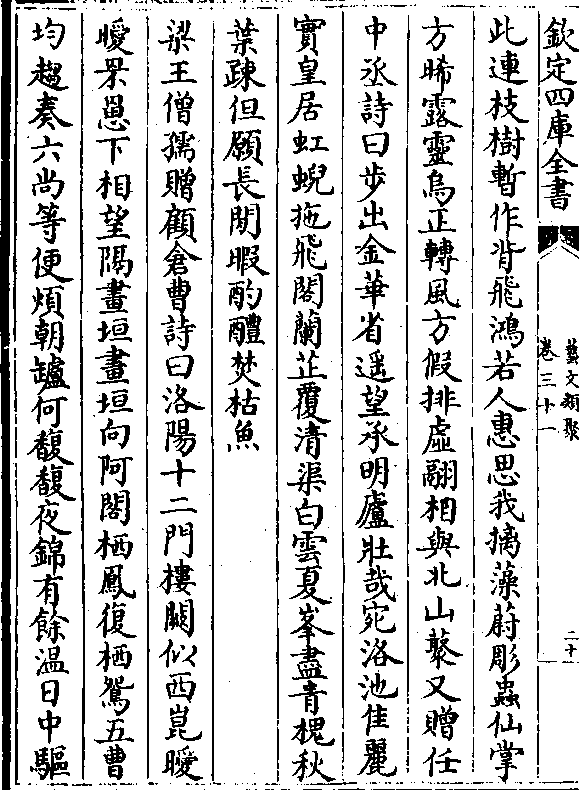 欽定四庫全書
藝文類聚
卷三十一
二十
此連枝樹暫作背飛鴻若人惠思我摛藻蔚彫蟲仙掌
方晞露靈烏正轉風方假排虛翮相與北山藂又贈任
中丞詩曰步出金華省遥望承明廬壯哉宛洛池佳麗
實皇居虹蜺拖飛閣蘭芷覆清渠白雲夏峯盡青槐秋
葉疎但願長閒暇酌醴焚枯魚
梁王僧孺贈顧倉曹詩曰洛陽十二門樓闕似西崑曖
曖罘罳下相望隔畫垣畫垣向阿閣栖鳳復栖鴛五曹
均趨奏六尚等便煩朝罏何馥馥夜錦有餘温日中驅